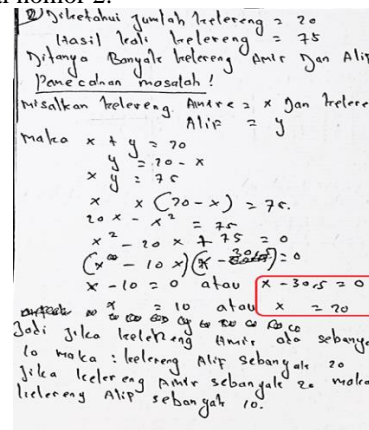 nomor 2.
② Diketahui Jumlah kelereng = 20
Hasil kali kelereng = 75
Ditanya Banyak kelereng Amir Dan Alif
Pemecahan masalah!
Misalkan kelereng Andre = x Dan kelere
Alif = y
Maka x + y = 20
y = 20 - x
x y = 75
x x (20 - x) = 75.
20 x - x² = 75
x² - 20 x + 75 = 0
x - 10 = 0 atau x - 30,5 = 0
x = 10 atau x = 20
Jadi Jika kelereng Amir ada sebanya
10 Maka : kelereng Alif sebanyak 20
Jika kelereng Amir sebanyak 20 maka
kelereng Alif sebanyak 10.